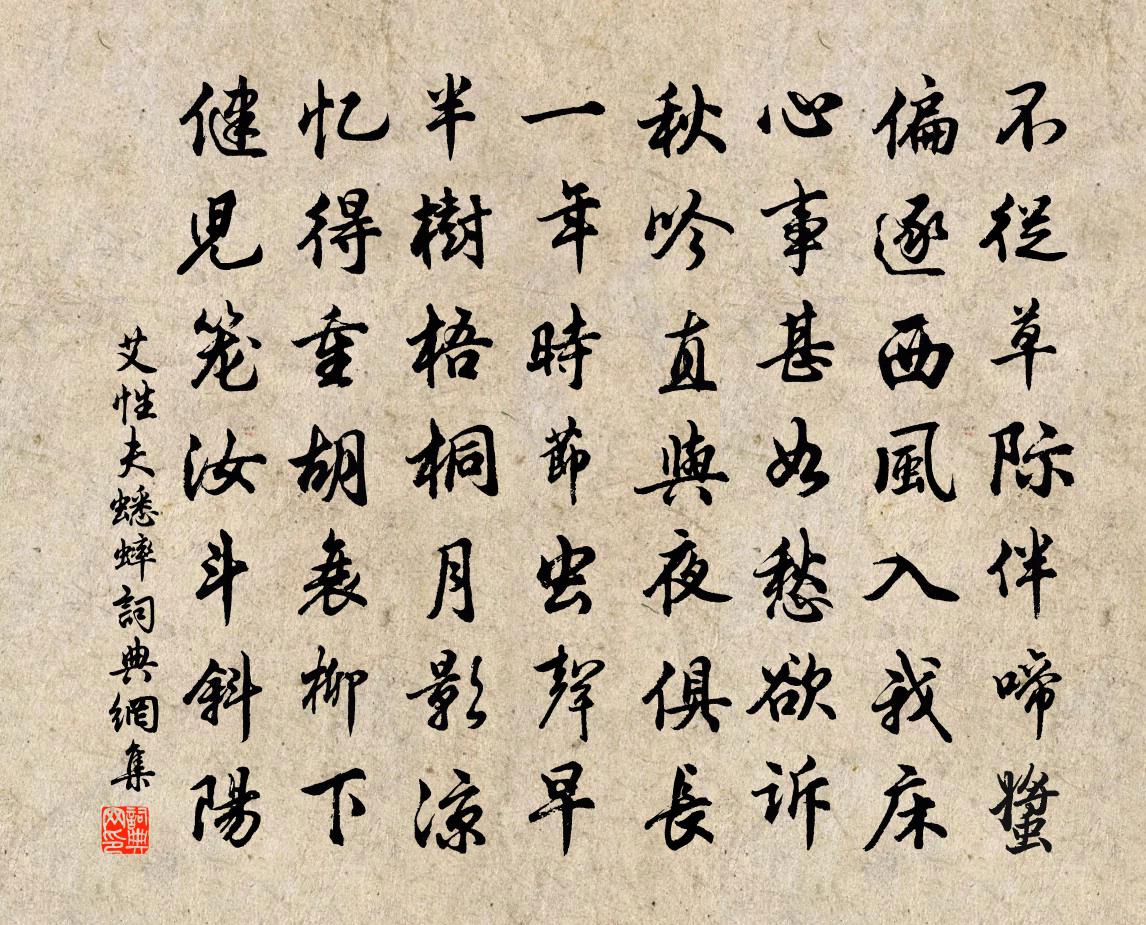 不從草際伴啼螿
偏逐西風入我床
心事甚如愁欲訴
秋吟直與夜俱長
一年時節虫聲早
半樹梧桐月影凉
忆得重胡衰柳下
健児笼汝斗斜陽
艾性夫蟋蟀詞典網集
詞典網印